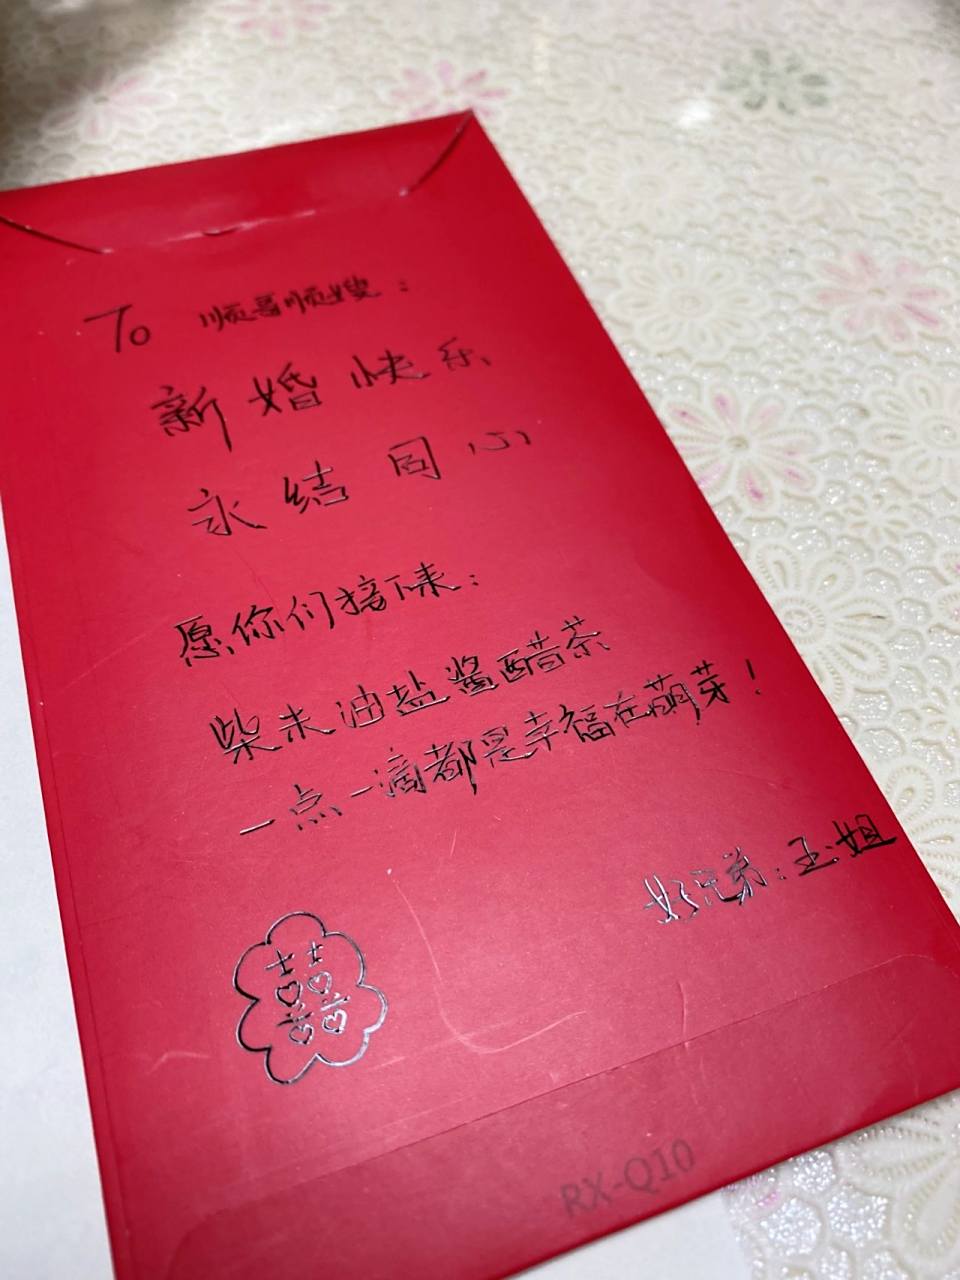 To 顺哥顺嫂：
新婚快乐
永结同心
愿你们接下来：
柴米油盐酱醋茶
一点一滴都是幸福在萌芽！
好兄弟：玉姐
囍
RX-Q10